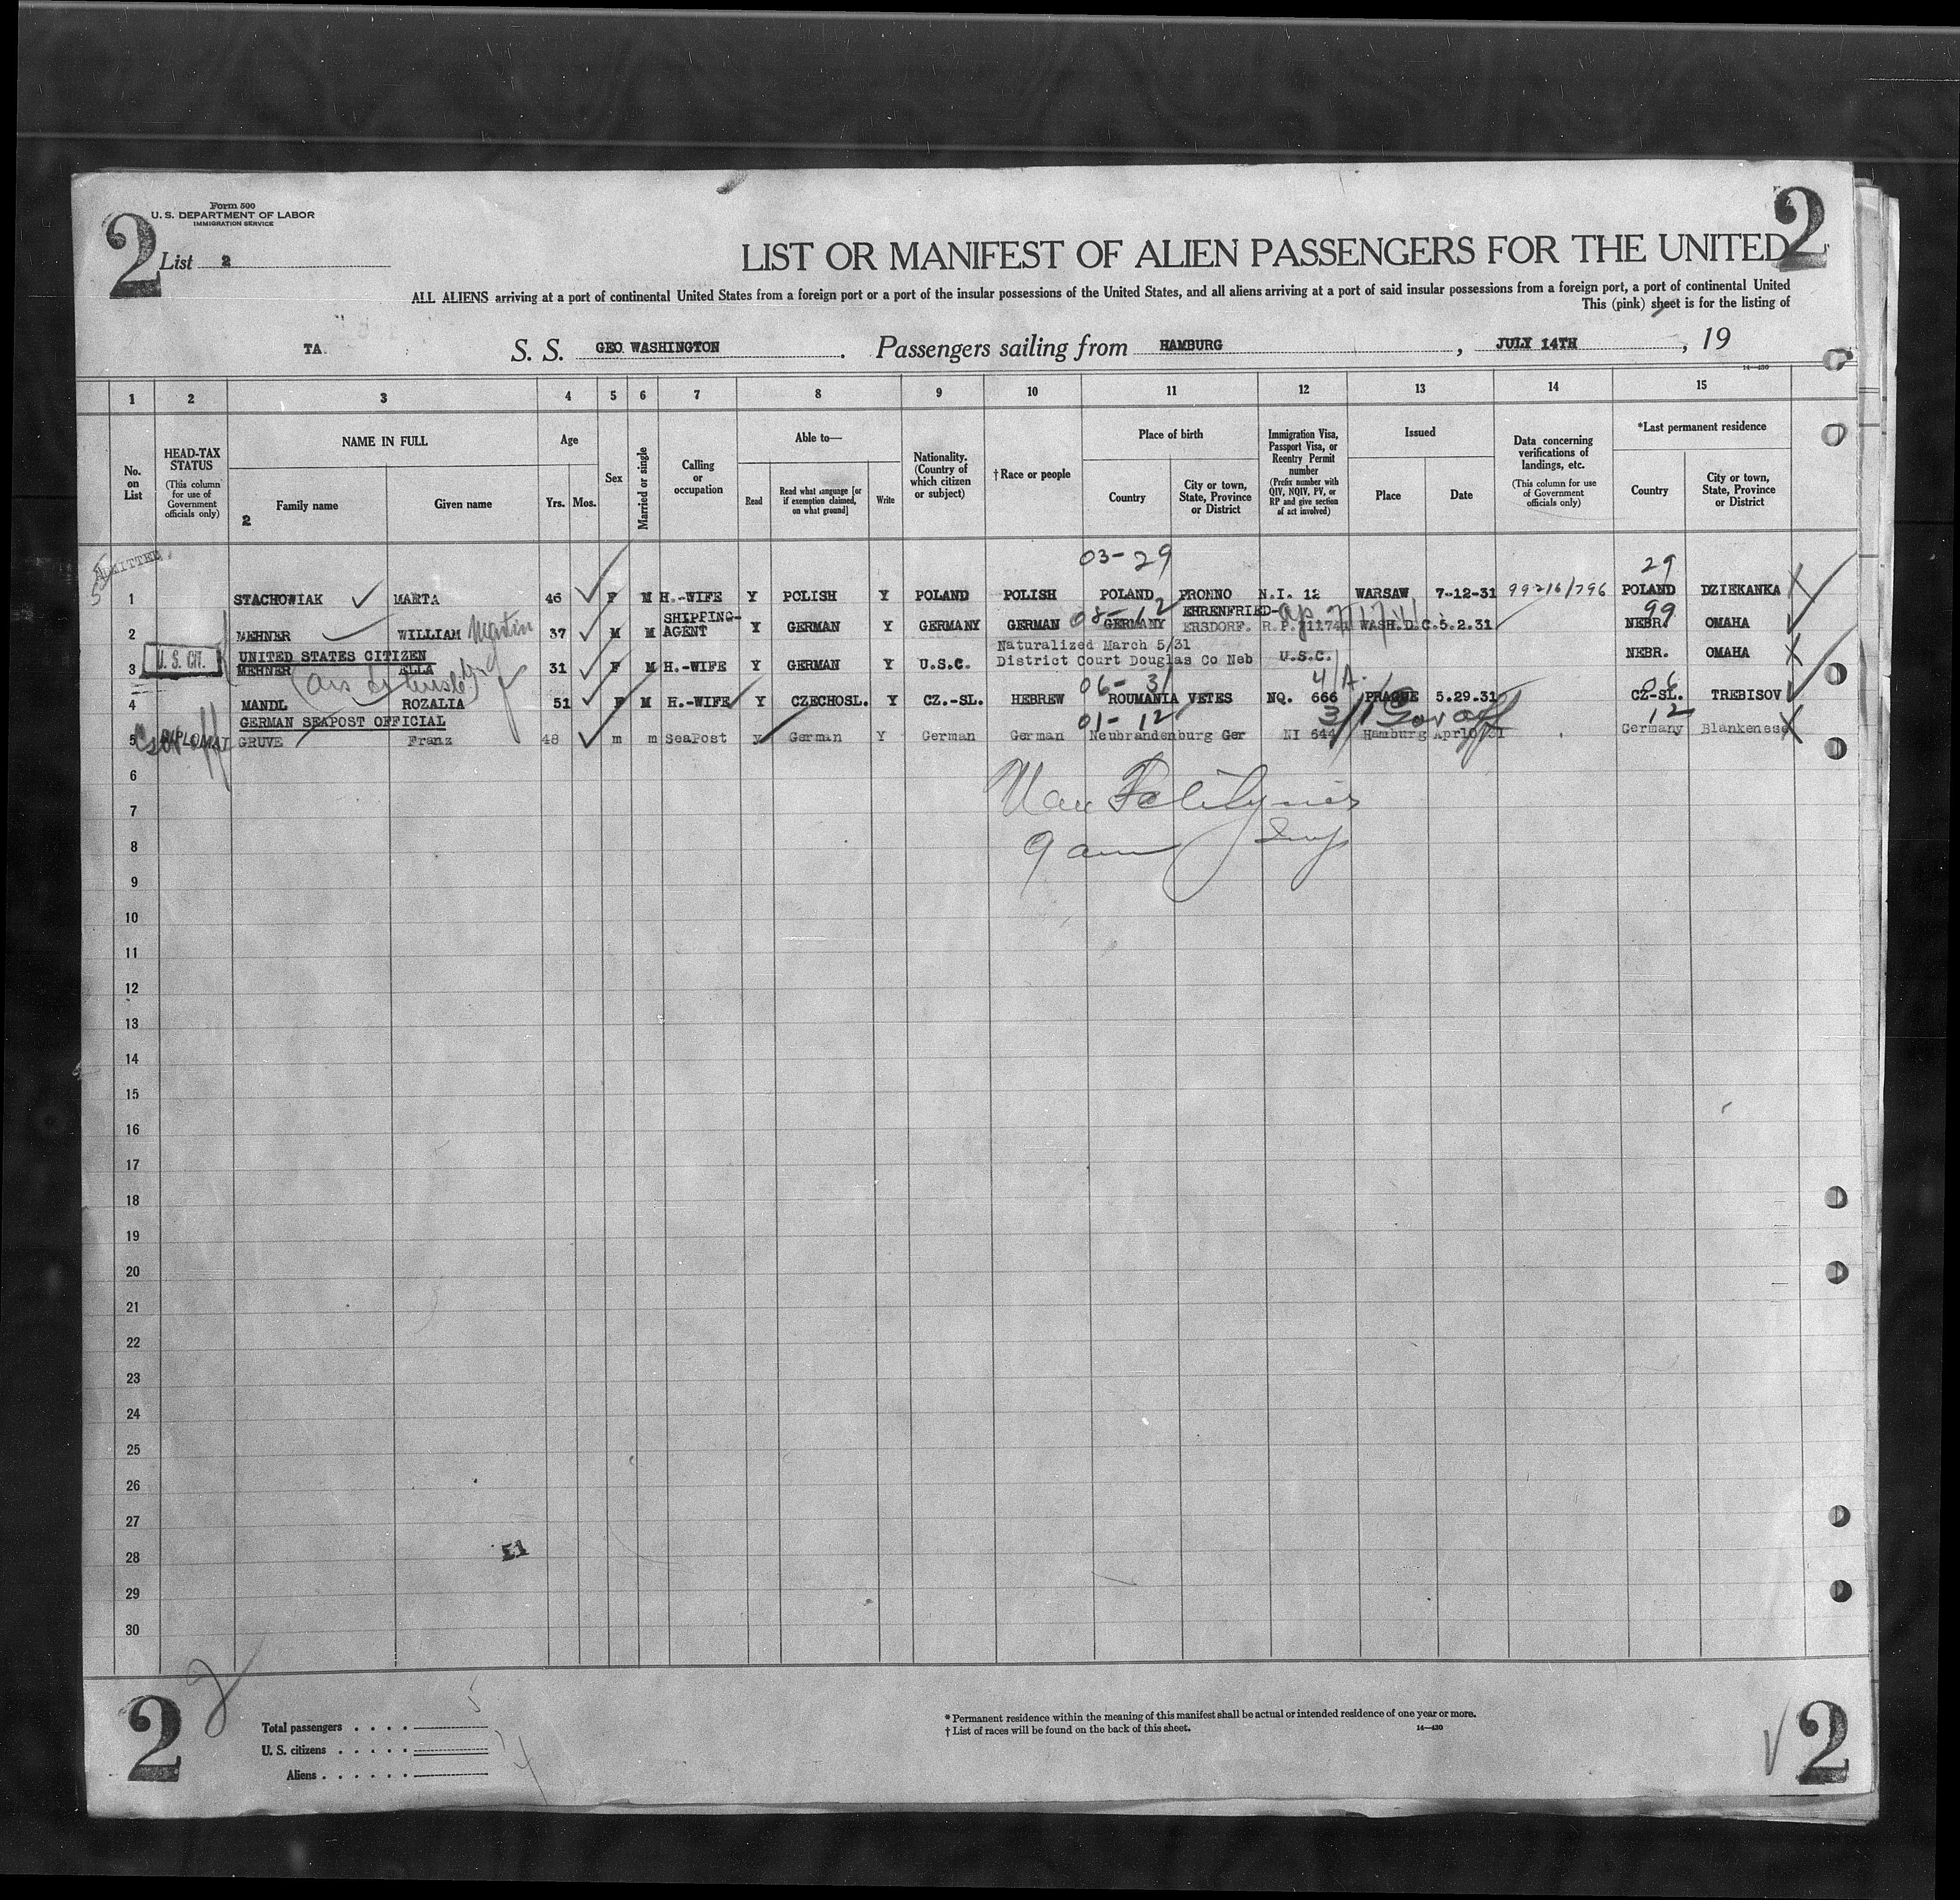 2
Form 500
U. S. DEPARTMENT OF LABOR
IMMIGRATION SERVICE
List 2
2
LIST OR MANIFEST OF ALIEN PASSENGERS FOR THE UNITED
ALL ALIENS arriving at a port of continental United States from a foreign port or a port of the insular possessions of the United States, and all aliens arriving at a port of said insular possessions from a foreign port, a port of continental United
This (pink) sheet is for the listing of
TA. S. S. GEO. WASHINGTON. Passengers sailing from HAMBURG, JULY 14TH, 19
14—430
1 2 3 4 5 6 7 8 9 10 11 12 13 14 15
No. on List
HEAD-TAX STATUS
(This column for use of Government officials only)
NAME IN FULL
Family name
Given name
2
Age
Yrs. Mos.
Sex
Married or single
Calling or occupation
Able to—
Read
Read what language [or if exemption claimed, on what ground]
Write
Nationality. (Country of which citizen or subject)
†Race or people
Place of birth
Country
City or town, State, Province or District
Immigration Visa, Passport Visa, or Reentry Permit number
(Prefix number with QIV, NQIV, PV, or RP and give section of act involved)
Issued
Place
Date
Data concerning verifications of landings, etc.
(This column for use of Government officials only)
*Last permanent residence
Country
City or town, State, Province or District
ADMITTED
03-29 29
1 STACHOWIAK MARTA 46 F M H.-WIFE Y POLISH Y POLAND POLISH POLAND PRONNO N.I. 12 WARSAW 7-12-31 99216/796 POLAND DZIEKANKA
SHIPPING- 08-12 EHRENFRIED- 99
2 MEHNER WILLIAM Martin 37 M M AGENT Y GERMAN Y GERMANY GERMAN GERMANY ERSDORF. R.P. WASH.D.C. 5.2.31 NEBR. OMAHA
UNITED STATES CITIZEN Naturalized March 5/31
U. S. CIT.
3 MEHNER ELLA 31 F M H.-WIFE Y GERMAN Y U.S.C. District Court Douglas Co Neb U.S.C. NEBR. OMAHA
06-31 06
4 MANDL ROZALIA 51 F M H.-WIFE Y CZECHOSL. Y CZ.-SL. HEBREW ROUMANIA VETES NQ. 666 PRAGUE 5.29.31 CZ-SL. TREBISOV
GERMAN SEAPOST OFFICIAL 01-12 3/1 Gov off 12
DIPLOMAT
5 GRUVE Franz 48 m m SeaPost y German Y German German Neubrandenburg Ger NI 644 Hamburg Apr10/31 Germany Blankenese
6
7
8
9 am Insp
9
10
11
12
13
14
15
16
17
18
19
20
21
22
23
24
25
26
27
28
29
30
2
2
Total passengers . . . . 5
U. S. citizens . . . . . 1
Aliens . . . . . . 4
* Permanent residence within the meaning of this manifest shall be actual or intended residence of one year or more.
† List of races will be found on the back of this sheet.
14—430
2